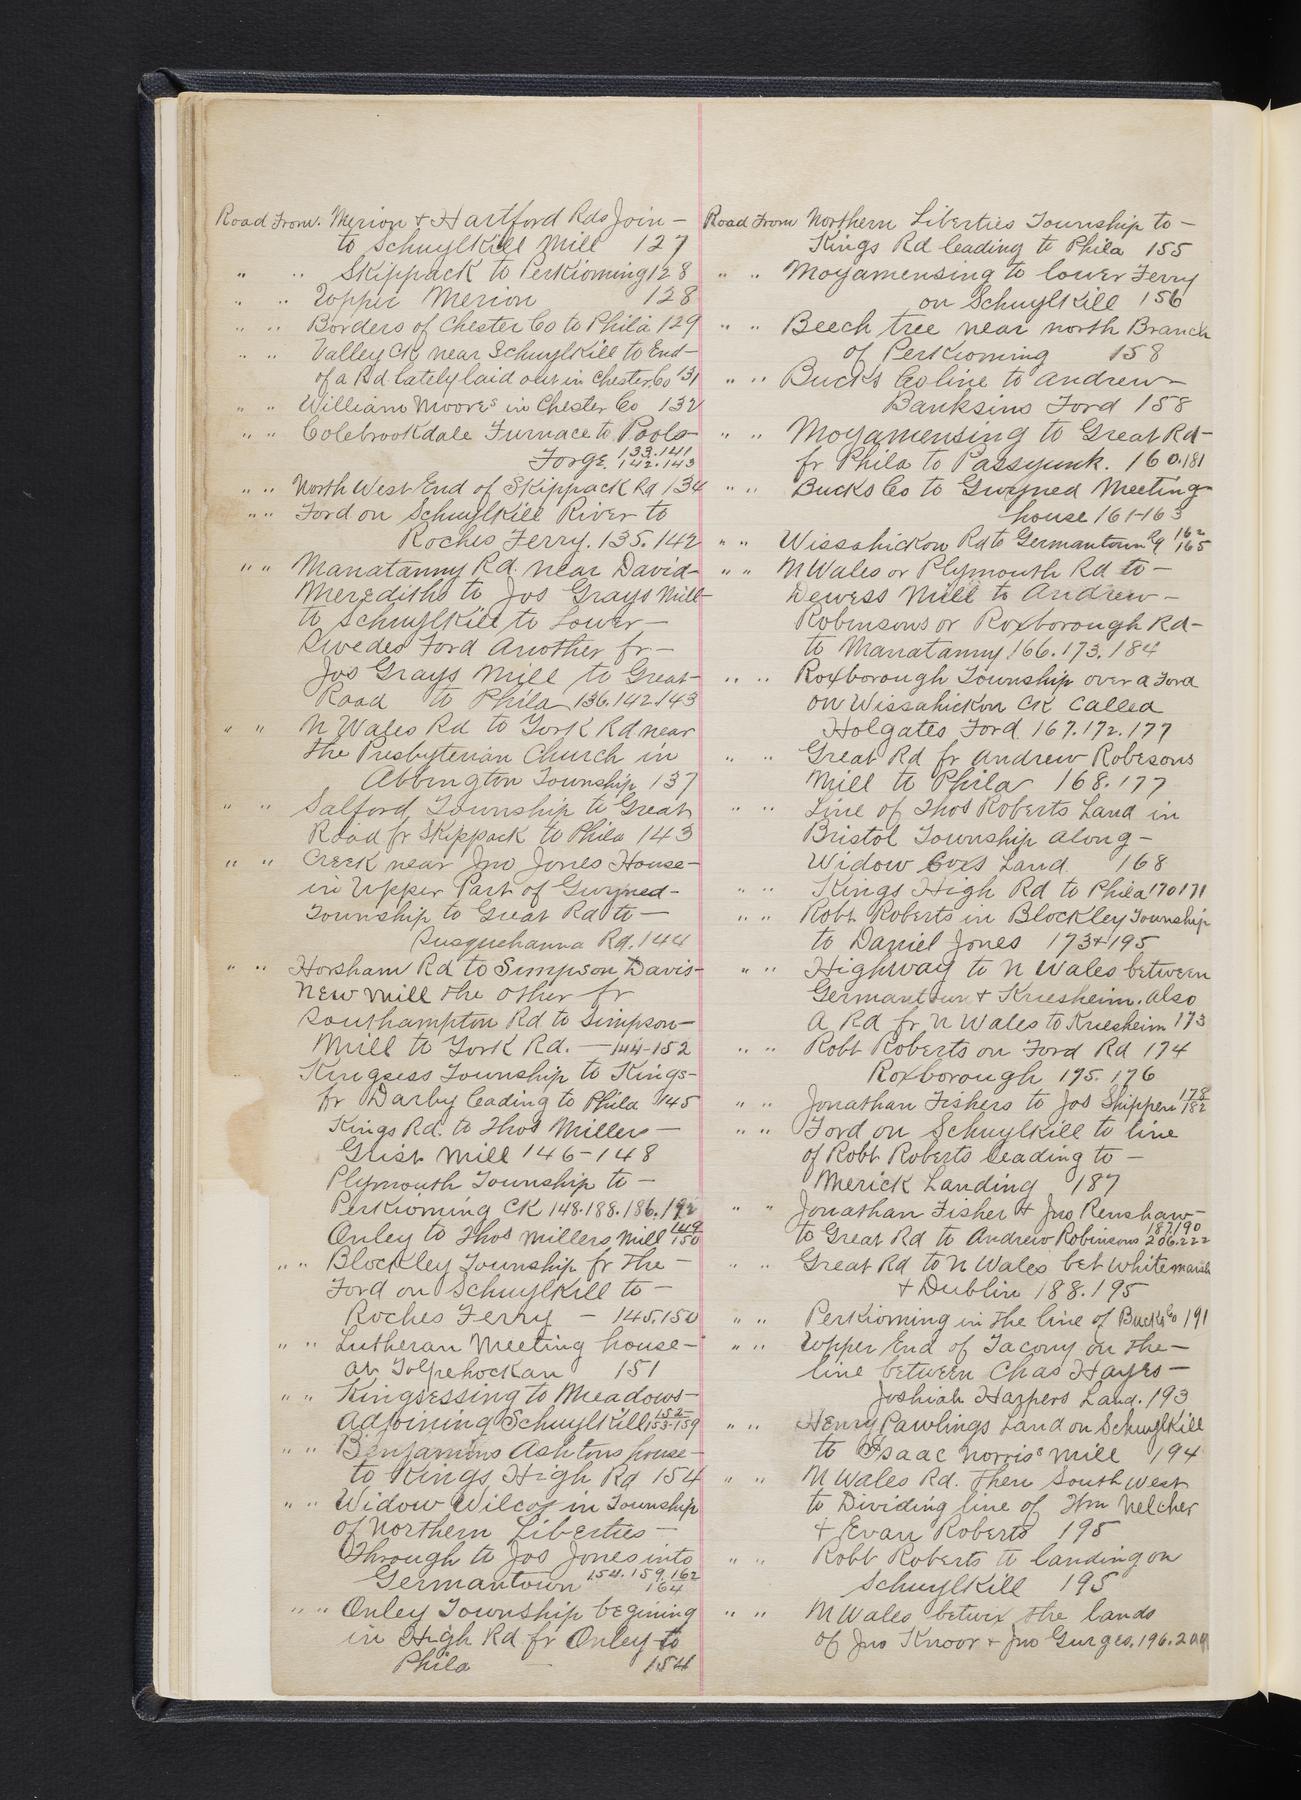 Road From. Merion & Hartford Rds Join -
to Schuylkill Mill 127
" " Skippack to Perkioming 128
" " Upper Merion 128
" " Borders of Chester Co to Phila 129
" " Valley Ck near Schuylkill to End -
of a Rd lately laid out in Chester Co 131
" " William Moores in Chester Co 132
" " Colebrookdale Furnace to Pools
Forge. 133.141
142.143
" " North West End of Skippack Rd 134
" " Ford on Schuylkill River to
Roches Ferry. 135.142
" " Manatanny Rd. near David -
Merediths to Jos Grays Mill -
to Schuylkill to Lower -
Swedes Ford Another fr -
Jos Grays Mill to Great -
Road to Phila 136.142.143
" " N Wales Rd to York Rd near
the Presbyterian Church in
Abbington Township 137
" " Salford Township to Great
Road fr Skippack to Phila 143
" " Creek near Jno Jones House -
in Upper Part of Gwyned -
Township to Great Rd to -
Susquehanna Rd. 144
" " Horsham Rd to Simpson Davis -
New Mill the other fr
Southampton Rd to Simpson -
Mill to York Rd. - 144-152
Kingsess Township to Kings -
fr Darby leading to Phila 145
Kings Rd. to Thos Millers -
Grist Mill 146-148
Plymouth Township to -
Perkioming CK 148.188.186.192
Onley to Thos Millers Mill 149
150
" " Blockley Township fr the -
Ford on Schuylkill to -
Roches Ferry - 145.150
" " Lutheran Meeting house -
at Tolpehockan 151
" " Kingsessing to Meadows -
Adjoining Schuylkill 152
153-159
" " Benjamins Ashtons house -
to Kings High Rd 154
" " Widow Wilcox in Township
of Northern Liberties -
Through to Jos Jones into
Germantown 154.159.162
164
" " Onley Township begining
in High Rd fr Onley to
Phila - 154
Road From Northern Liberties Township to -
Kings Rd leading to Phila 155
" " Moyamensing to lower Ferry
on Schuylkill 156
" " Beech tree near north Branch
of Perkioming 158
" " Bucks Co line to Andrew -
Banksins Ford 158
" " Moyamensing to Great Rd -
fr Phila to Passyunk. 160.181
" " Bucks Co to Gwyned Meeting
house 161-163
" " Wissahickon Rd to Germantown Rd 162
165
" " N Wales or Plymouth Rd to -
Dewess Mill to Andrew -
Robinsons or Roxborough Rd -
to Manatanny 166.173.184
" " Roxborough Township over a Ford
on Wissahickon CK Called
Holgates Ford 167.172.177
" " Great Rd fr Andrew Robesons
Mill to Phila 168.177
" " Line of Thos Roberts Land in
Bristol Township along -
Widow Coxs Land 168
" " Kings High Rd to Phila 170 171
" " Robt Roberts in Blockley Township
to Daniel Jones 173 & 195
" " Highway to N Wales between
Germantown & Kriesheim. Also
A Rd fr N Wales to Kriesheim 173
" " Robt Roberts on Ford Rd 174
Roxborough 175. 176
" " Jonathan Fishers to Jos Shippen 178
182
" " Ford on Schuylkill to line
of Robt Roberts leading to -
Merick Landing 187
" " Jonathan Fisher & Jno Renshaw -
to Great Rd to Andrew Robinsons 187.190
206.222
" " Great Rd to N Wales bet Whitemarsh
& Dublin 188.195
" " Perkioming in the line of Bucks Co 191
" " Upper End of Tacony on the -
line between Chas Hayes -
Joshiah Harpers Land. 193
" " Henry Pawlings Land on Schuylkill
to Isaac Norris's Mill 194
" " N Wales Rd. Then South West
to Dividing line of Wm Melcher
& Evan Roberts 195
" " Robt Roberts to landing on
Schuylkill 195
" " N Wales betwix the lands
of Jno Knoor & Jno Gurges. 196.200